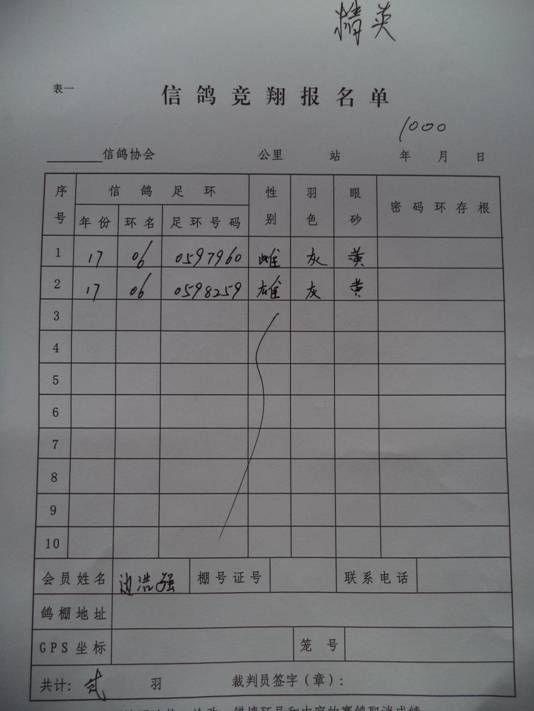 精英
表一
信鸽竞翔报名单
1000
______信鸽协会 公里 站 年 月 日
序号 信鸽足环 性别 羽色 眼砂 密码环存根
年份 环名 足环号码
1 17 06 0597960 雌 灰 黄
2 17 06 0598259 雄 灰 黄
3
4
5
6
7
8
9
10
会员姓名 边浩强 棚号证号 联系电话
鸽棚地址
GPS坐标 笼号
共计: 贰 羽 裁判员签字(章):